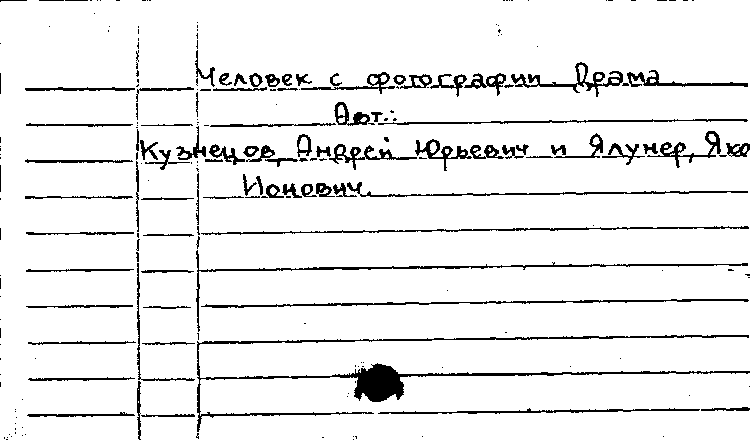 Человек с фотографии. Драма.
Авт.:
Кузнецов, Андрей Юрьевич и Ялунер, Яко
Ионович.